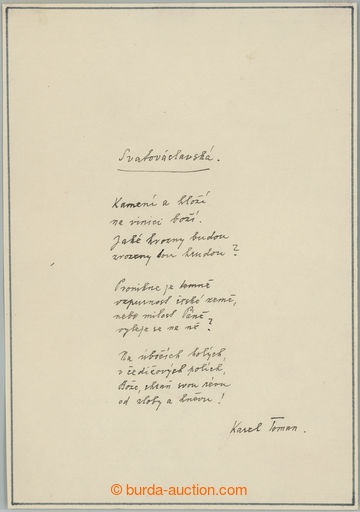 Svatováclavská.
Kamení a hloží
na vinici boží.
Jaké hrozny budou
zrozeny tou hrudou?
Pronikne je temně
vzpurnost české země,
nebo milost Páně
vyleje se na ně?
Na úbočích holých,
v čedičových polích,
Bože, chraň svou révu
od zloby a hněvu!
Karel Toman.
burda-auction.com